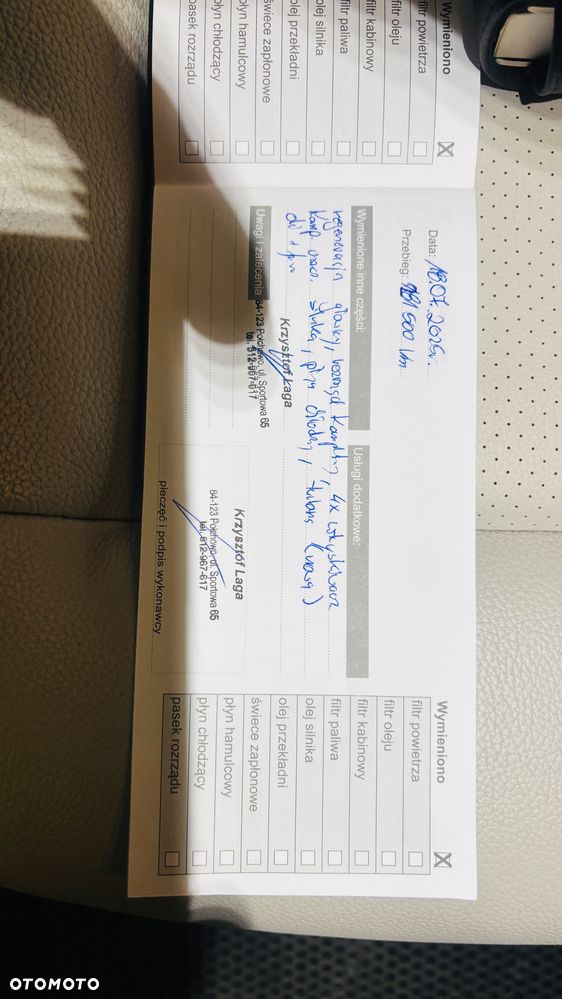 Wymieniono
filtr powietrza
filtr oleju
filtr kabinowy
filtr paliwa
olej silnika
olej przekładni
świece zapłonowe
płyn hamulcowy
płyn chłodzący
pasek rozrządu
Data: 18.07.2025r.
Przebieg: 181 500 km
Wymienione inne części:
Usługi dodatkowe:
regeneracja głowicy, rozrząd kompletny, 4x wtryskiwacz
komp. uszcz. silnika, płyn chłodn, turbina (nowa)
Krzysztof Łaga
Uwagi i zalecenia
84-123 Połchowo, ul. Sportowa 65
tel. 512-967-617
Krzysztof Łaga
84-123 Połchowo, ul. Sportowa 65
tel. 512-967-617
pieczęć i podpis wykonawcy
Wymieniono
filtr powietrza
filtr oleju
filtr kabinowy
filtr paliwa
olej silnika
olej przekładni
świece zapłonowe
płyn hamulcowy
płyn chłodzący
pasek rozrządu
OTOMOTO